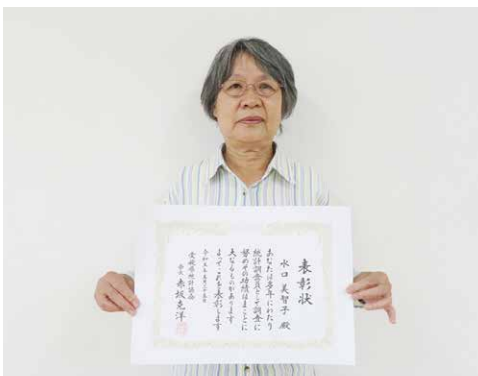 表彰状
水口美智子 殿
あなたは多年にわたり
統計調査員として調査に
努めその功績はまことに
大なるものがあります
よってこれを表彰します
令和五年五月三十日
愛媛県統計協会
会長 赤坂克洋